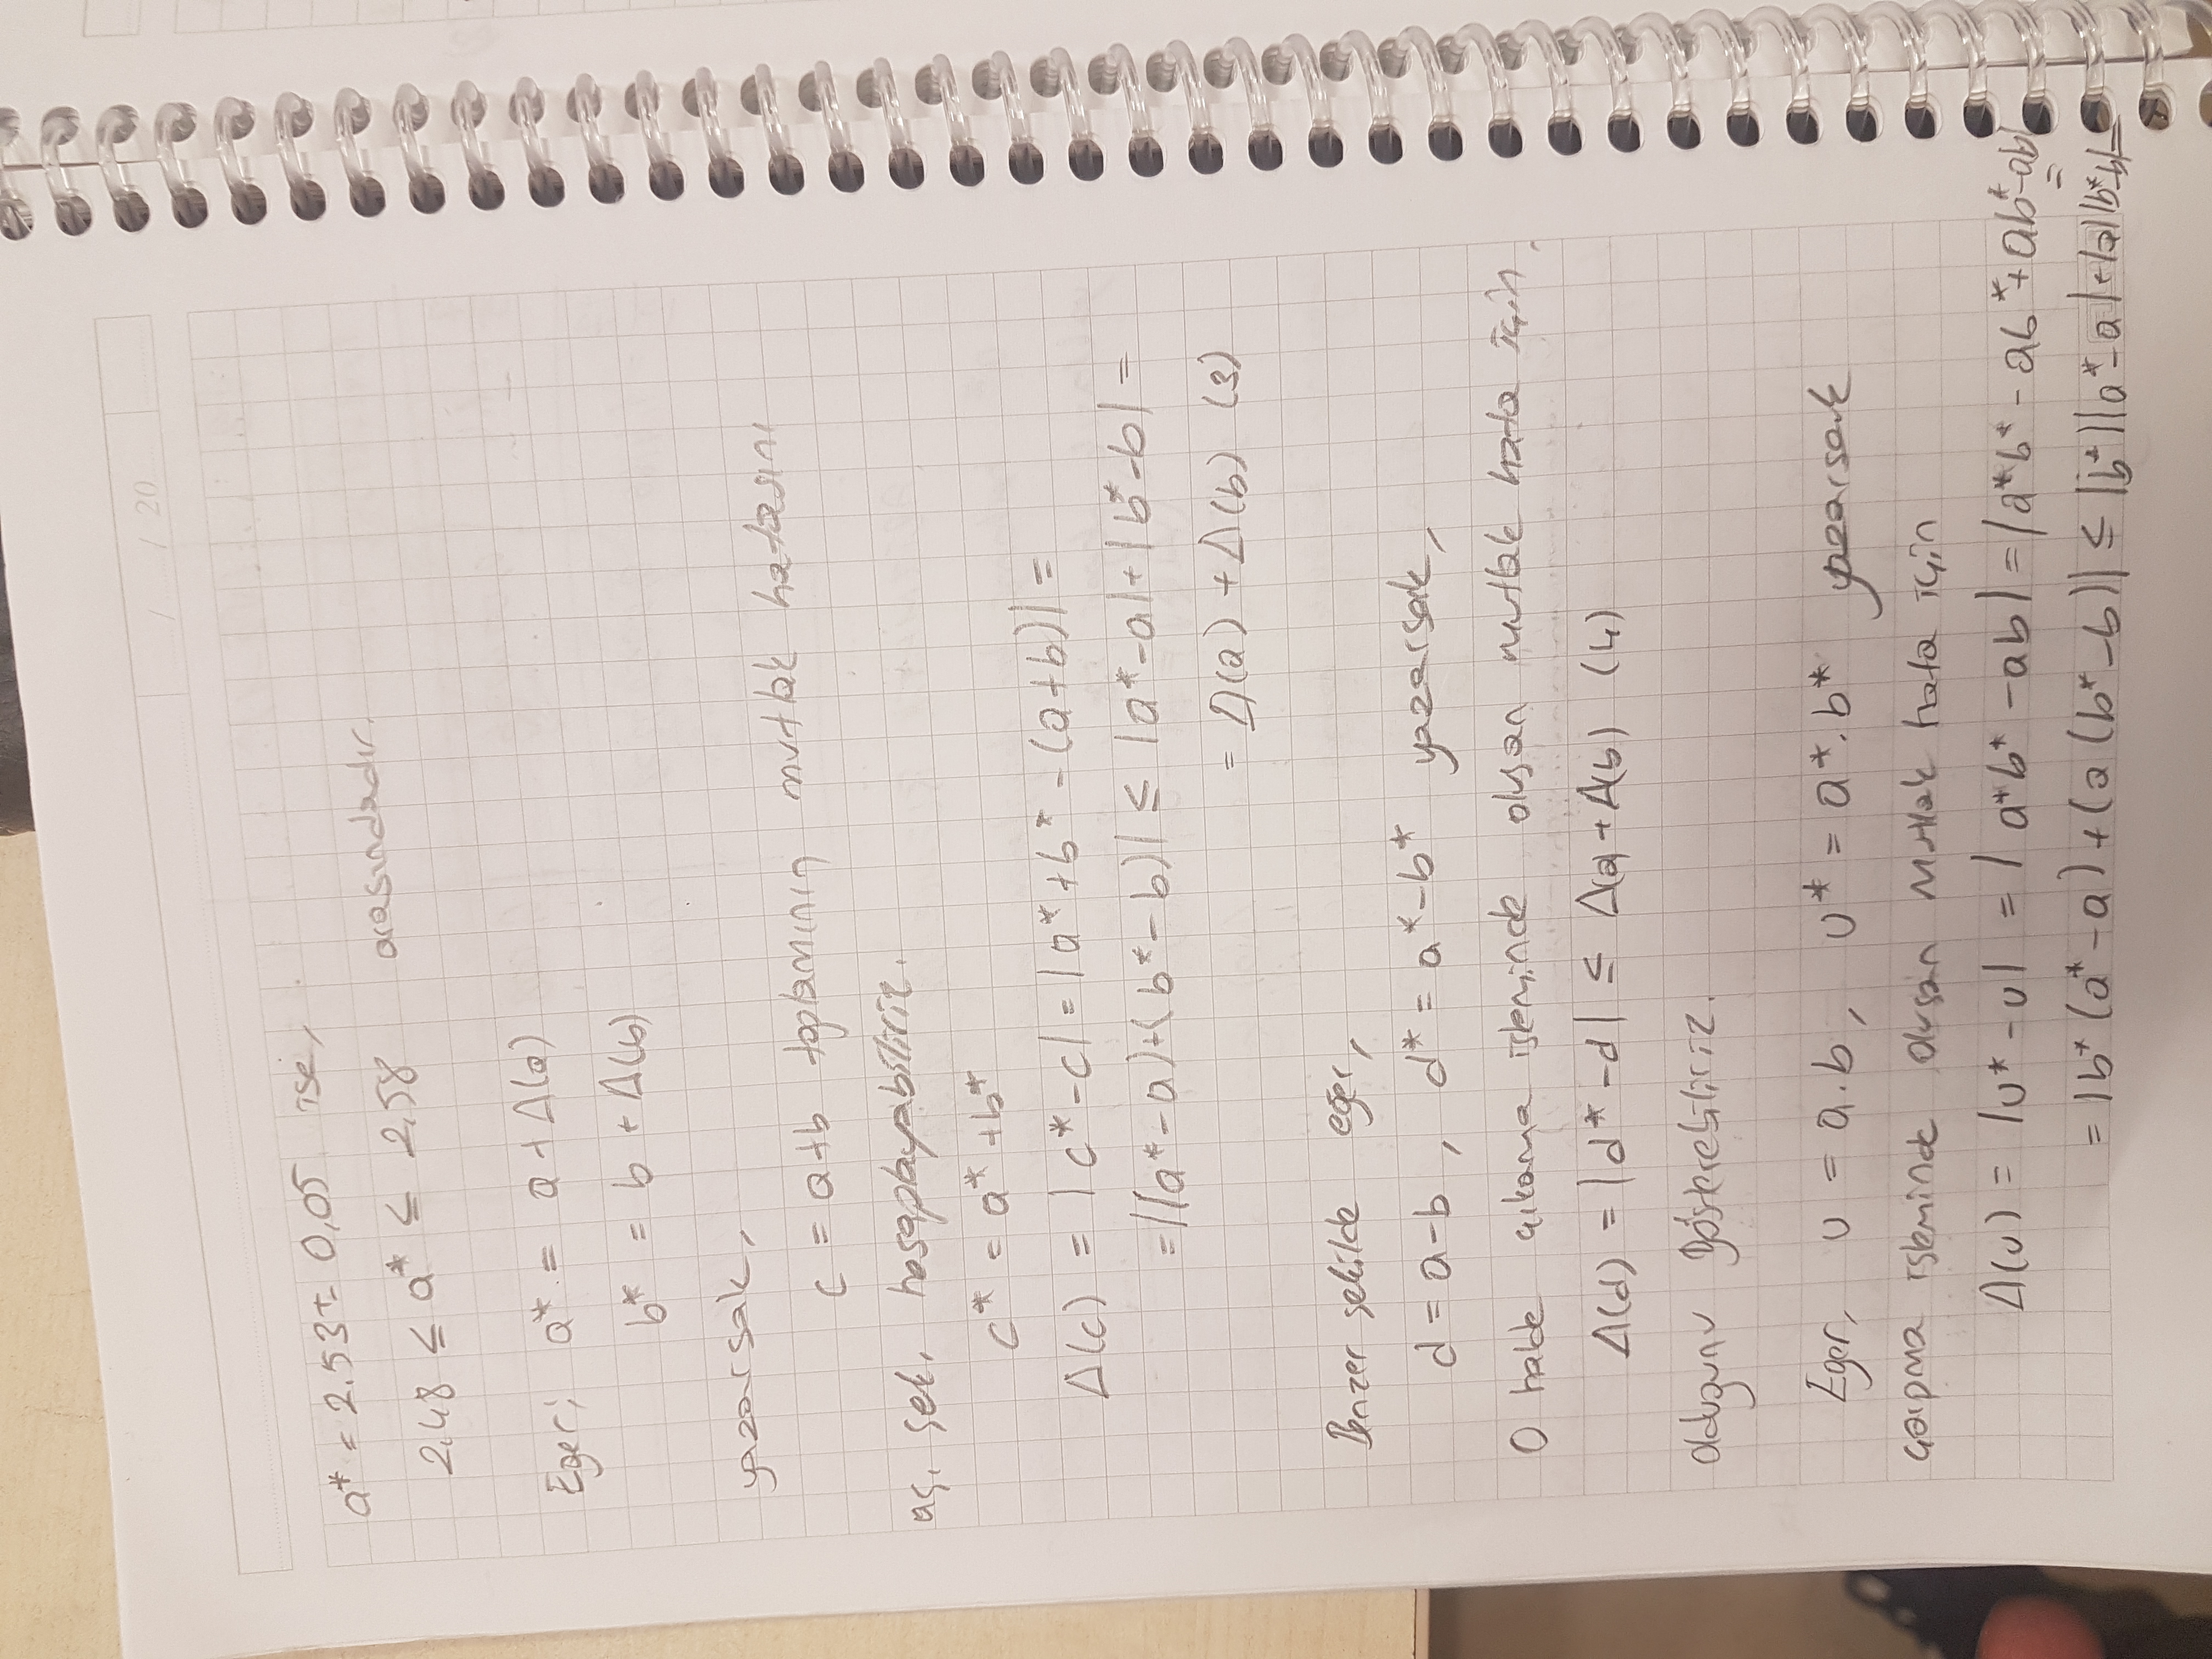 / / 20
a* = 2.53 ± 0,05 ise,
2,48 ≤ a* ≤ 2,58 arasındadır.
Eger; a* = a + Δ(a)
b* = b + Δ(b)
yazarsak,
c = a+b toplamının mutlak hatasını
aş. şek. hesaplayabiliriz.
c* = a* + b*
Δ(c) = |c* - c| = |a* + b* - (a+b)| =
= |(a* - a) + (b* - b)| ≤ |a* - a| + |b* - b| =
= Δ(a) + Δ(b) (3)
Benzer şekilde eğer,
d = a-b , d* = a* - b* yazarsak,
O halde çıkarma işleminde oluşan mutlak hata için,
Δ(d) = |d* - d| ≤ Δ(a) + Δ(b) (4)
oldugunu gösterebiliriz.
Eger, u = a.b, u* = a*.b* yazarsak
çarpma işleminde oluşan mutlak hata için
Δ(u) = |u* - u| = |a*b* - ab| = |a*b* - ab* + ab* - ab|
=
= |b*(a* - a) + (a(b* - b)| ≤ |b*||a* - a| + |a||b* - b| =